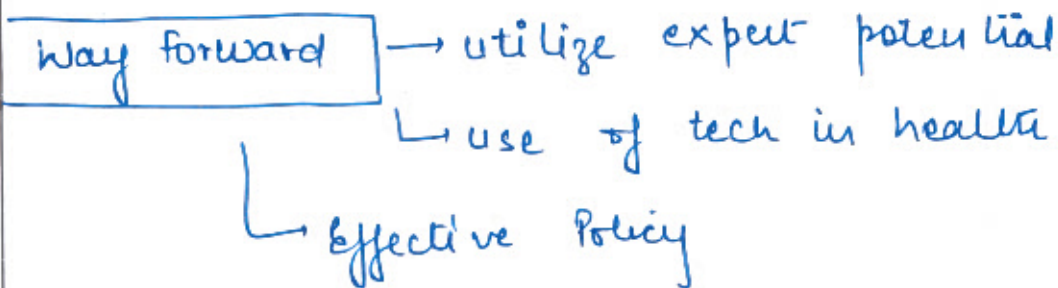 Way forward → utilize expert potential
↳ use of tech in health
↳ Effective Policy